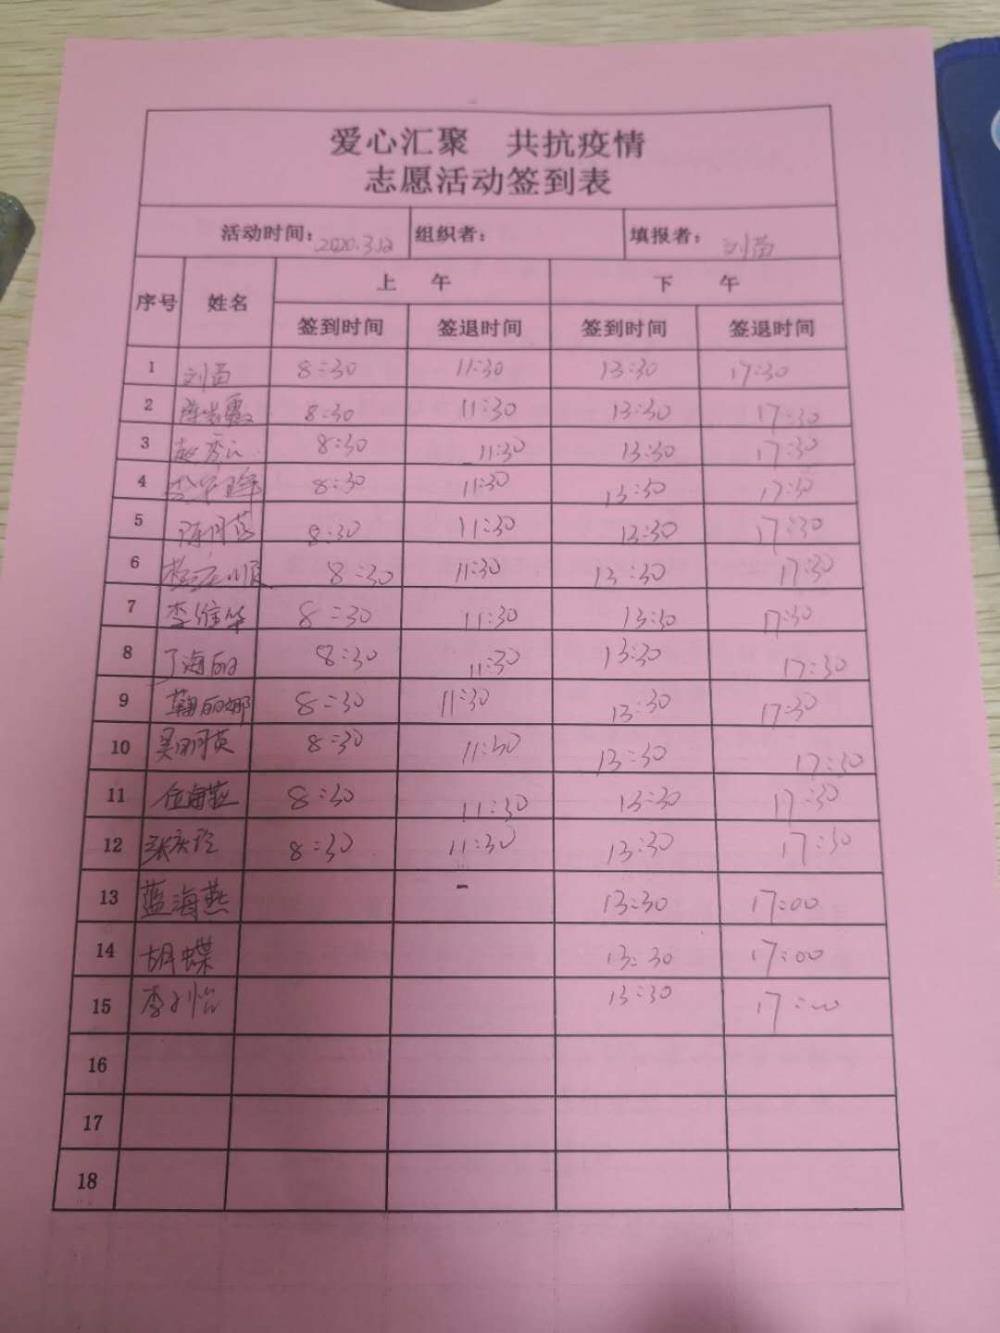 爱心汇聚 共抗疫情
志愿活动签到表
活动时间: 2020.3.12 组织者: 填报者: 刘苗
上 午 下 午
序号 姓名
签到时间 签退时间 签到时间 签退时间
1 刘苗 8:30 11:30 13:30 17:30
2 8:30 11:30 13:30 17:30
3 赵秀 8:30 11:30 13:30 17:30
4 8:30 11:30 13:30 17:30
5 陈月英 8:30 11:30 13:30 17:30
6 顺 8:30 11:30 13:30 17:30
7 李维华 8:30 11:30 13:30 17:30
8 丁海丽 8:30 11:30 13:30 17:30
9 鞠丽娜 8:30 11:30 13:30 17:30
10 吴明英 8:30 11:30 13:30 17:30
11 任海燕 8:30 11:30 13:30 17:30
12 张庆玲 8:30 11:30 13:30 17:30
13 蓝海燕 - 13:30 17:00
14 胡蝶 13:30 17:00
15 李 怡 13:30 17:00
16
17
18